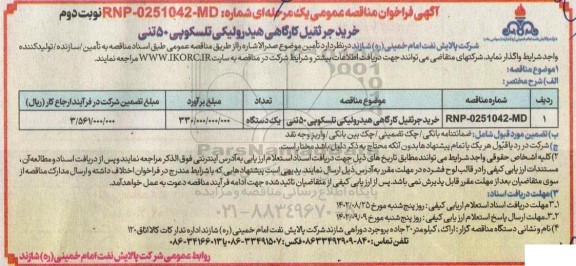 آگهی فراخوان مناقصه عمومی یک مرحله ای شماره: RNP-0251042-MD نوبت دوم
خرید جرثقیل کارگاهی هیدرولیکی تلسکوپی ۵۰ تنی
شرکت پالایش نفت امام خمینی (ره) شازند در نظر دارد تأمین موضوع صدرالاشاره را از طریق مناقصه عمومی طبق اسناد مناقصه به تأمین / سازنده / تولیدکننده
واجد شرایط واگذار نماید. شرکتهای متقاضی می توانند جهت دریافت اطلاعات بیشتر و شرایط شرکت در مناقصه به سایت WWW.IKORC.IR مراجعه نمایند.
۱) موضوع مناقصه:
الف) شرح مختصر:
ردیف شماره مناقصه موضوع مناقصه تعداد مبلغ برآورد مبلغ تضمین شرکت در فرآیند ارجاع کار (ریال)
۱ RNP-0251042-MD خرید جرثقیل کارگاهی هیدرولیکی تلسکوپی ۵۰ تنی یک دستگاه ۳۳۰/۰۰۰/۰۰۰/۰۰۰ ۳/۵۶۱/۰۰۰/۰۰۰
ب) تضمین مورد قبول شامل: ضمانتنامه بانکی / چک تضمینی / چک بین بانکی / واریز وجه نقد
ج) شرکت در رد یا قبول هر یک یا تمام پیشنهادها بدون آنکه محتاج به ذکر دلیل باشد مختار است.
۲) کلیه اشخاص حقوقی واجد شرایط می توانند مطابق تاریخ های ذیل جهت دریافت اسناد استعلام ارزیابی به آدرس اینترنتی فوق الذکر مراجعه نمایند و پس از دریافت اسناد و مطالعه آن،
مستندات ارزیابی کیفی را در قالب لوح فشرده در مهلت مقرر به آدرس ذیل ارسال نمایند. بدیهی است پیشنهادهایی که با شرایط مندرج در فراخوان اختلاف داشته و ارسال مدارک مناقصه از
سوی متقاضیان بعد از مهلت مقرر قابل پذیرش نمی باشد. پس از ارزیابی کیفی از متقاضیان تائید شده جهت ادامه فرآیند مناقصه دعوت به عمل خواهد آمد.
۳) مهلت دریافت اسناد:
۳.۱ مهلت دریافت اسناد استعلام ارزیابی کیفی: روز پنجشنبه مورخ ۱۴۰۲/۰۸/۲۵
۳.۲ مهلت ارسال پاسخ استعلام ارزیابی کیفی: روز پنج شنبه مورخ ۱۴۰۲/۰۹/۰۹
۴) نام و نشانی دستگاه مناقصه گزار: اراک، کیلومتر ۲۰ جاده بروجرد دوراهی شازند شرکت پالایش نفت امام خمینی (ره) شازند اداره تدارکات کالا اتاق ۱۲۰
تلفن تماس: ۸۴۰-۰۸۶۳۳۴۹۲۹۰۹ فکس: ۰۸۶-۳۳۴۹۱۵۰۷ یا ۰۸۶-۳۳۱۶۶۰۱۳
روابط عمومی شرکت پالایش نفت امام خمینی (ره) شازند
ParsNamadData
پایگاه اطلاع رسانی مناقصه و مزایده
۰۲۱-۸۸۳۴۹۶۷۰